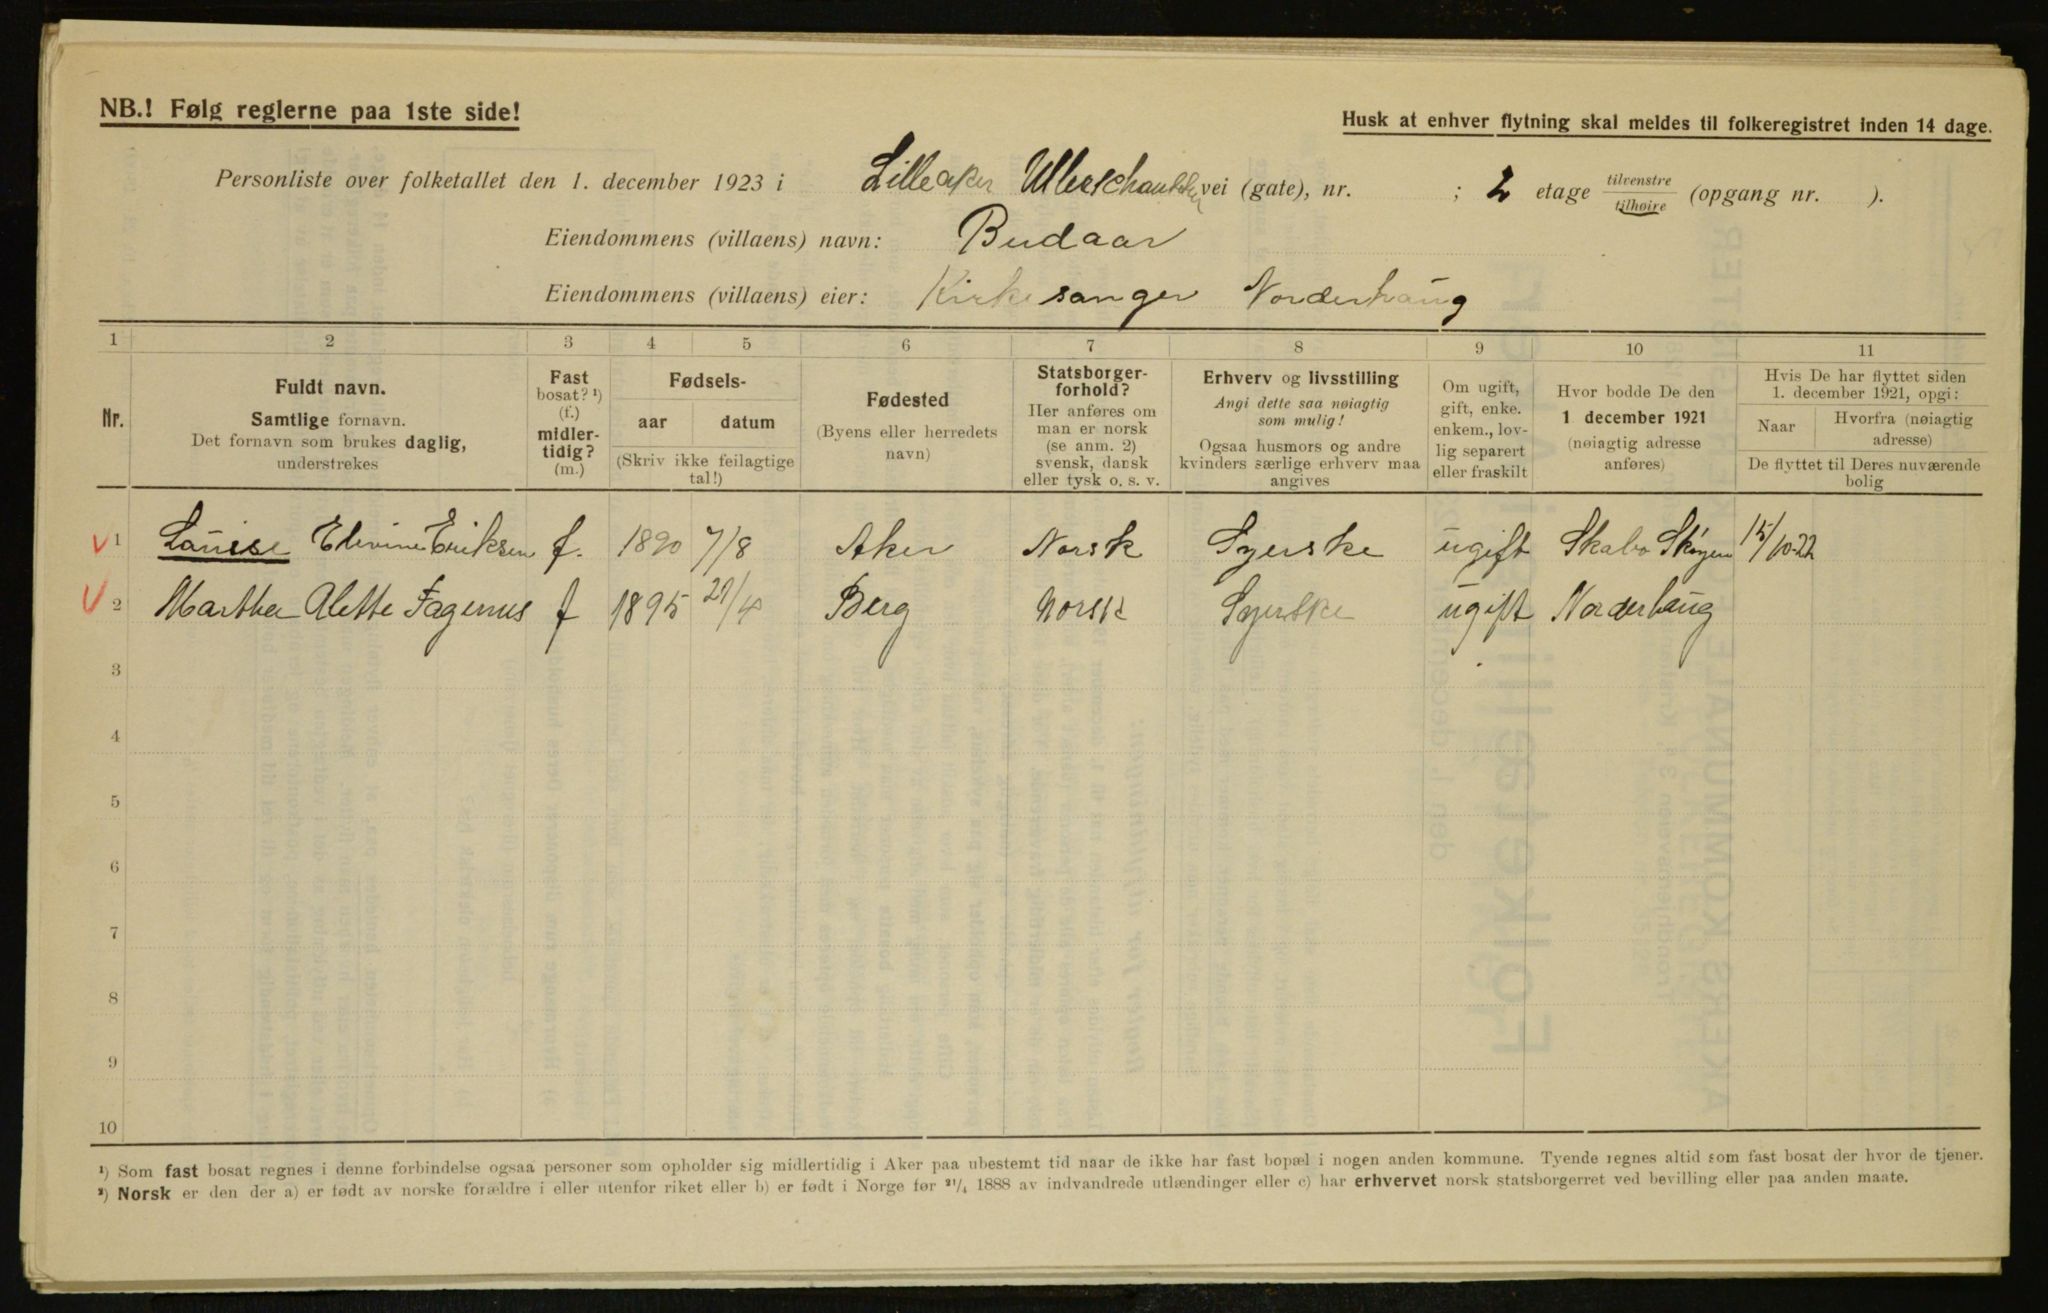 NB.! Følg reglerne paa 1ste side!
Husk at enhver flytning skal meldes til folkeregistret inden 14 dage.
Personliste over folketallet den 1. december 1923 i Lilleaker vei (gate), nr. ; 2 etage tilvenstre tilhøire (opgang nr. ).
Eiendommens (villaens) navn: Budaar
Eiendommens (villaens) eier: Kirkesanger Norderhaug
1 2 3 4 5 6 7 8 9 10 11
Nr.
Fuldt navn.
Samtlige fornavn.
Det fornavn som brukes daglig,
understrekes
Fast
bosat? ¹)
(f.)
midler-
tidig?
(m.)
Fødsels-
aar datum
(Skriv ikke feilagtige
tal!)
Fødested
(Byens eller herredets
navn)
Statsborger-
forhold?
Her anføres om
man er norsk
(se anm. 2)
svensk, dansk
eller tysk o. s. v.
Erhverv og livsstilling
Angi dette saa nøiagtig
som mulig!
Ogsaa husmors og andre
kvinders særlige erhverv maa
angives
Om ugift,
gift, enke.
enkem., lov-
lig separert
eller fraskilt
Hvor bodde De den
1 december 1921
(nøiagtig adresse
anføres)
Hvis De har flyttet siden
1. december 1921, opgi:
Naar Hvorfra (nøiagtig
adresse)
De flyttet til Deres nuværende
bolig
1 Louise Elevine Eriksen f. 1890 7/8 Aker Norsk Syerske ugift Skabo Skøyen 15/10-22
2 Martha Alette Fagernes f 1895 29/4 Berg Norsk Syerske ugift Norderhaug
3
4
5
6
7
8
9
10
¹) Som fast bosat regnes i denne forbindelse ogsaa personer som opholder sig midlertidig i Aker paa ubestemt tid naar de ikke har fast bopæl i nogen anden kommune. Tyende regnes altid som fast bosat der hvor de tjener.
²) Norsk er den der a) er født av norske forældre i eller utenfor riket eller b) er født i Norge før ²¹/₄ 1888 av indvandrede utlændinger eller c) har erhvervet norsk statsborgerret ved bevilling eller paa anden maate.